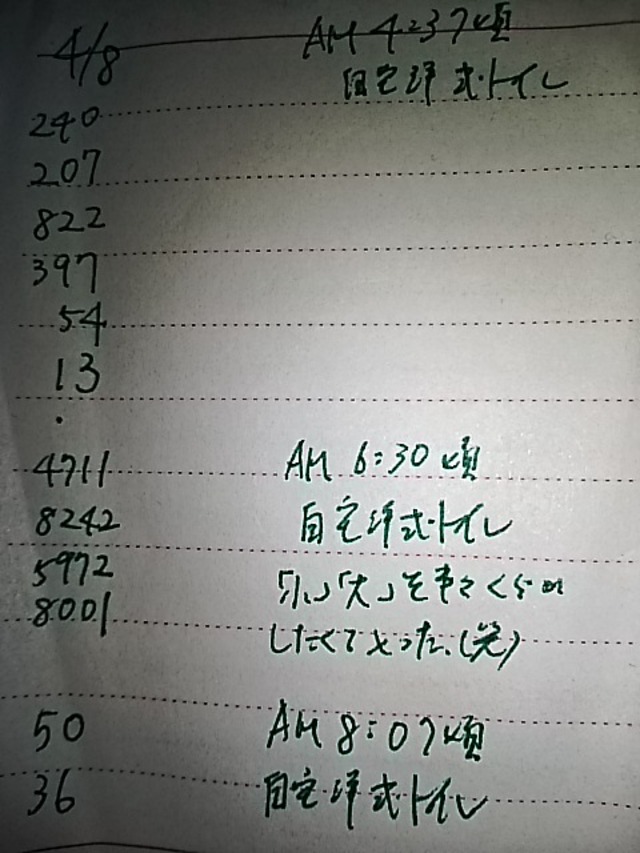 4/8 AM 4:37頃
自宅洋式トイレ
240
207
822
397
54
13
・
4711 AM 6:30頃
8242 自宅洋式トイレ
5972 「小」「大」を
8001 したくてやった。(笑)
50 AM 8:07頃
36 自宅洋式トイレ